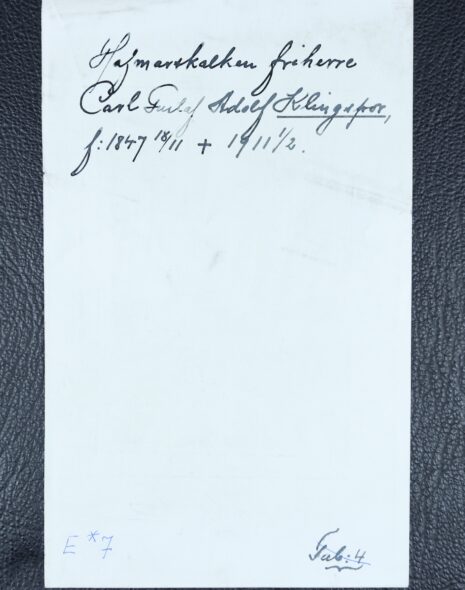 Hofmarskalken friherre
Carl Gustaf Adolf Klingspor,
f: 1847 18/11 + 1911 1/2.
E *7
Tab: 4